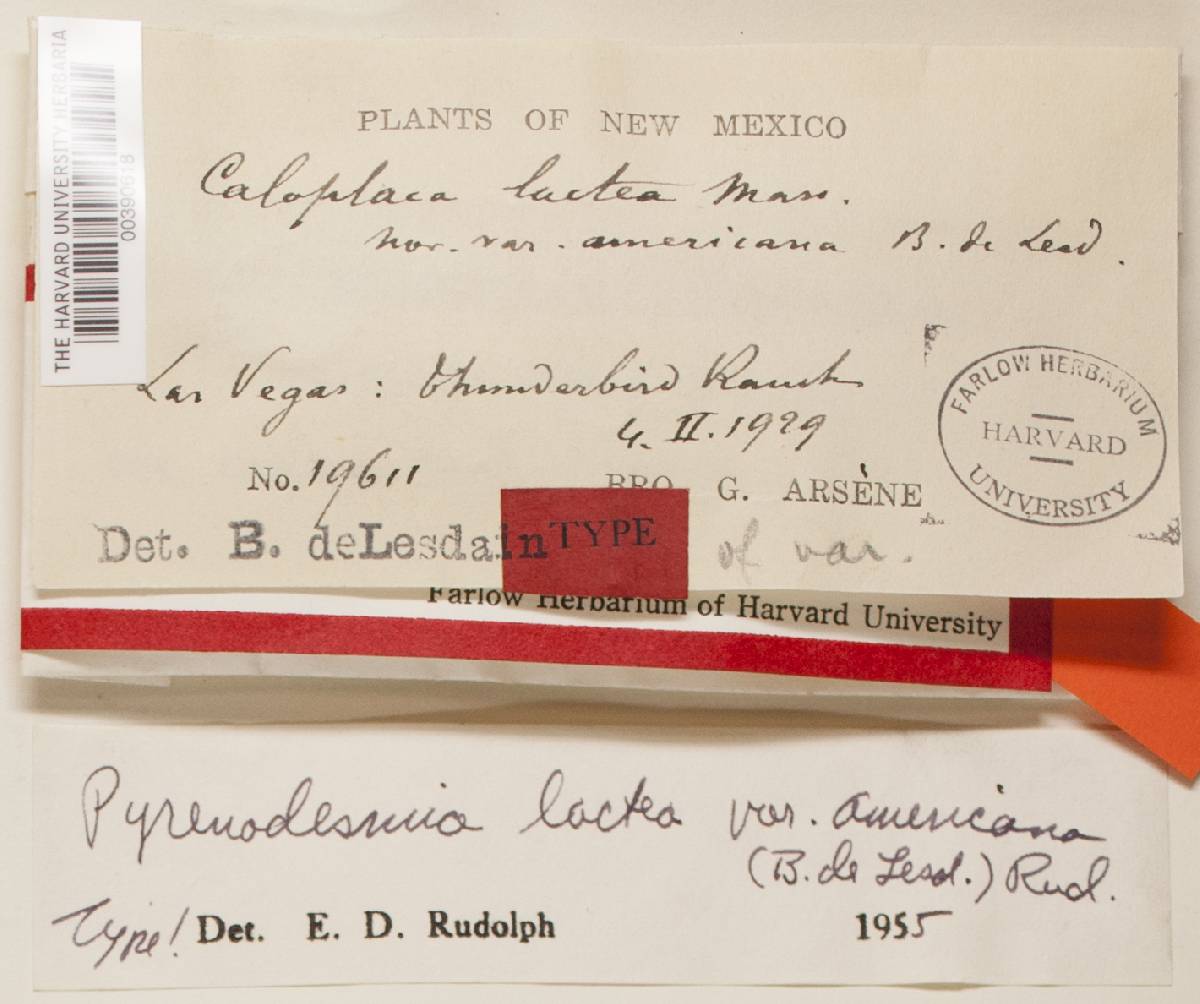 THE HARVARD UNIVERSITY HERBARIA
00390618
PLANTS OF NEW MEXICO
Caloplaca lactea Mass.
nov. var. americana B. de Lesd.
Las Vegas: thunderbird Ranch
4. II. 1929
No. 19611
BRO G. ARSÈNE
FARLOW HERBARIUM
HARVARD
UNIVERSITY
Det. B. deLesdain TYPE of var.
Farlow Herbarium of Harvard University
Pyrenodesmia lactea var. americana
(B. de Lesd.) Rud.
Type! Det. E. D. Rudolph 1955